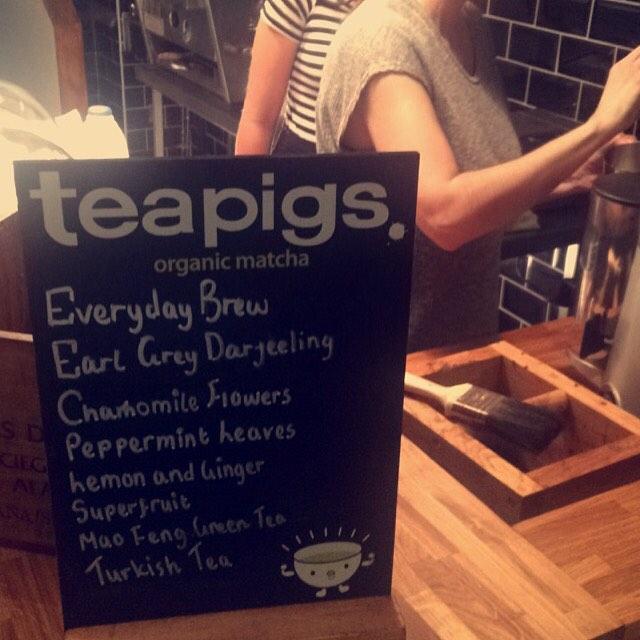 teapigs.
organic matcha
Everyday Brew
Earl Grey Darjeeling
Chamomile Flowers
Peppermint Leaves
Lemon and Ginger
Superfruit
Mao Feng Green Tea
Turkish Tea